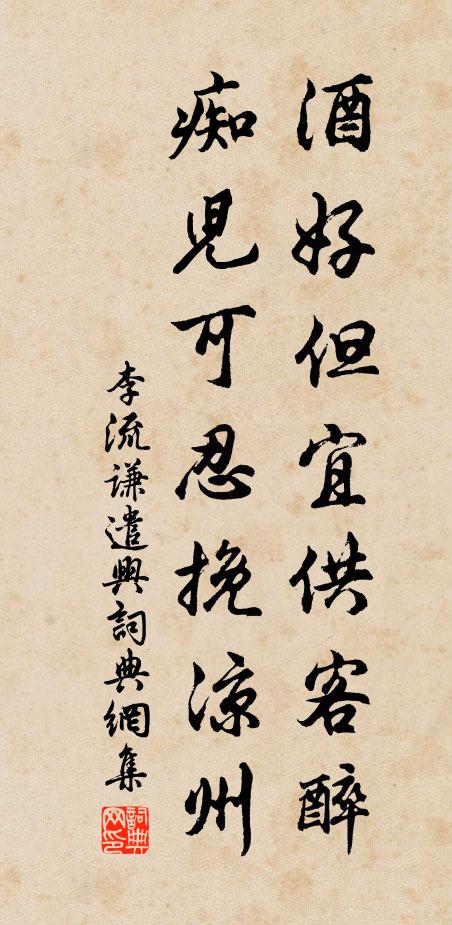 酒好但宜供客醉
痴児可忍挽涼州
李流謙遣興詞典網集
詞典网印